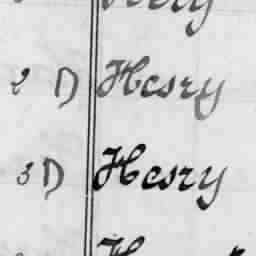 2 D Hesry
3 D Hesry